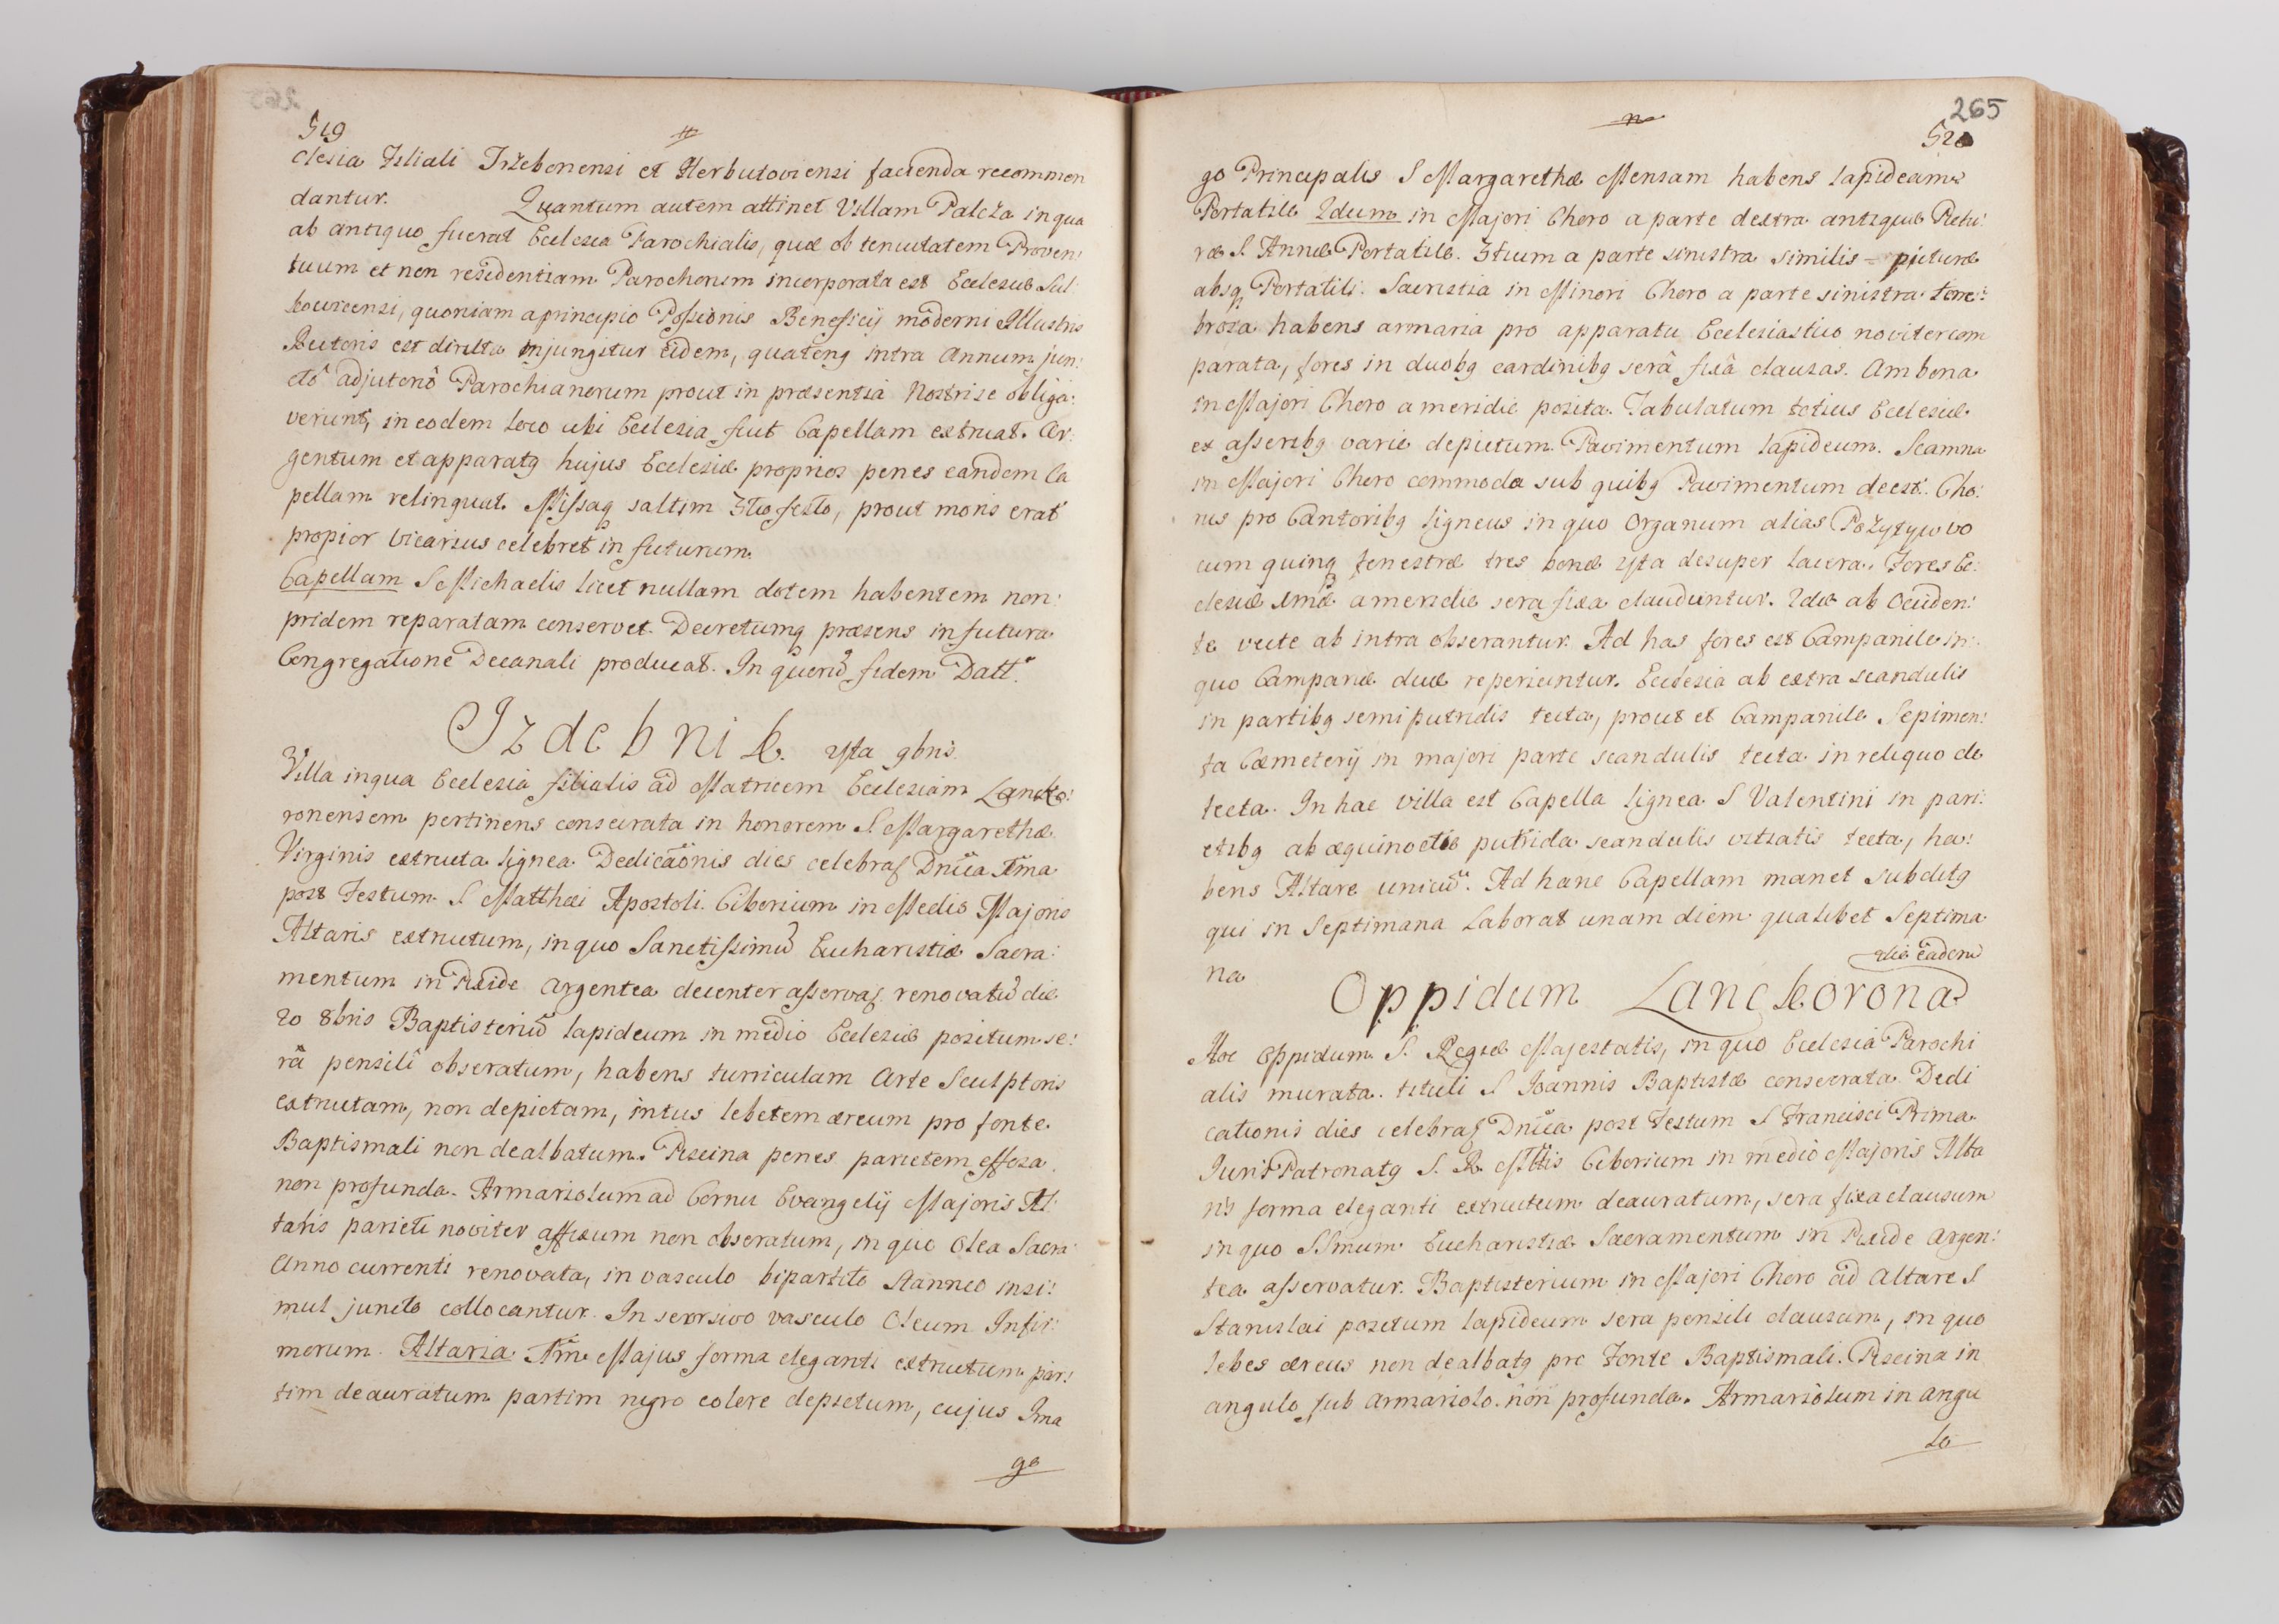 519
clesia Filiali Trzebonensi et Herbutoviensi facienda recommen
dantur. Quantum autem attinet Villam Palcza in qua
ab antiquo fuerat Ecclesia Parochialis, quæ ob tenuitatem Proven:
tuum et non residentiam Parochorum incorporata est Ecclesiæ Sul:
kovicensi, quoniam a principio Possionis Beneficij moderni Illustris
Rectoris est diruta injungitur eidem, quateng intra Annum jun:
ctô adjutoriô Parochianorum prout in præsentia Nostri se obliga:
verunt, in eodem loco ubi Ecclesia fuit Capellam extruat. Ar:
gentum et apparatg hujus Ecclesiæ proprios penes eandem Ca
pellam relinquat. Missaq saltim 3tio festo, prout moris erat
propior Vicarius celebret in futurum.
Capellam S Michaelis licet nullam dotem habentem non:
pridem reparatam conservet. Decretumq præsens in futura
Congregatione Decanali producat. In quorũ fidem Datt.
Izdebnik. 21ma 9bris.
Villa in qua Ecclesia filialis ad Matricem Ecclesiam Lancko:
ronensem pertinens consecrata in honorem S. Margarethæ
Virginis extructa lignea. Dedicaõnis dies celebraӡ Dnĩca 1ma
post Festum S Matthæi Apostoli. Ciborium in Medio Majoris
Altaris extructum, in quo Sanctissimũ Eucharistiæ Sacra:
mentum in Pixide Argentea decenter asservaӡ renovatũ die
20 8bris Baptisteriũ lapideum in medio Ecclesiæ positum se:
râ pensili obseratum, habens turriculam Arte Sculptoris
extructam, non depictam, intus lebetem æreum pro fonte
Baptismali non dealbatum. Piscina penes parietem effosa
non profunda. Armariolum ad Cornu Evangelij Majoris Al:
taris parieti noviter affixum non obseratum, in quo Olea Sacra
Anno currenti renovata, in vasculo bipartito Stanneo insi:
mul juncto collocantur. In seorsivo vasculo Oleum Infir:
morum. Altaria 1m̃ Majus forma eleganti extructum par:
tim deauratum partim nigro colore depictum, cujus Ima
go
265
520
go Principalis S Margarethæ Mensam habens lapideam
Portatile 2dum in Majori Choro a parte dextra antiquæ Pictu:
ræ S. Annæ Portatile. 3tium a parte sinistra similis picturæ
absq Portatili. Sacristia in Minori Choro a parte sinistra tene:
brosa habens armaria pro apparatu Ecclesiastico noviter com
parata, fores in duobg cardinibg serâ fixâ clausas. Ambona
in Majori Choro a meridie posita. Tabulatum totius Ecclesiæ
ex asseribg varie depictum. Pavimentum lapideum. Scamna
in Majori Choro commoda sub quibg Pavimentum deest. Cho:
rus pro Cantoribg ligneus in quo Organum alias Pozytywo vo
cum quinq fenestræ tres bonæ 4ta desuper lacera. Fores Ec:
clesiæ 1mæ a meridie sera fixa clauduntur. 2dæ ab Occiden:
te vecte ab intra obserantur. Ad has fores est Campanile in
quo Campanæ duæ reperiuntur. Ecclesia ab extra scandulis
in partibg semiputridis tecta, prout et Campanile Sepimen:
ta Cæmeterij in majori parte scandulis tecta in reliquo de
tecta. In hac villa est Capella lignea S Valentini in pari:
etibg ab æquinoctio putrida scandulis vitiatis tecta, ha:
bens Altare unicũ. Ad hanc Capellam manet subditg
qui in Septimana Laborat unam diem qualibet Septima
na
die eadem
Oppidum Lanckorona
Hoc Oppidum S. Regiæ Majestatis, in quo Ecclesia Parochi
alis murata tituli S Joannis Baptistæ consecrata. Dedi
cationis dies celebraӡ Dnĩca post Festum S Francisci Prima
Juris Patronatg S. R. Mttis Ciborium in medio Majoris Alta
ris forma eleganti extructum deauratum, sera fixa clausum
in quo SSmum Eucharistiæ Sacramentum in Pixide Argen:
tea asservatur. Baptisterium in Majori Choro ad Altare S
Stanislai positum lapideum sera pensili clausum, in quo
lebes æreus non dealbatg pro Fonte Baptismali. Piscina in
angulo sub Armariolo non profunda. Armariolum in angu
lo